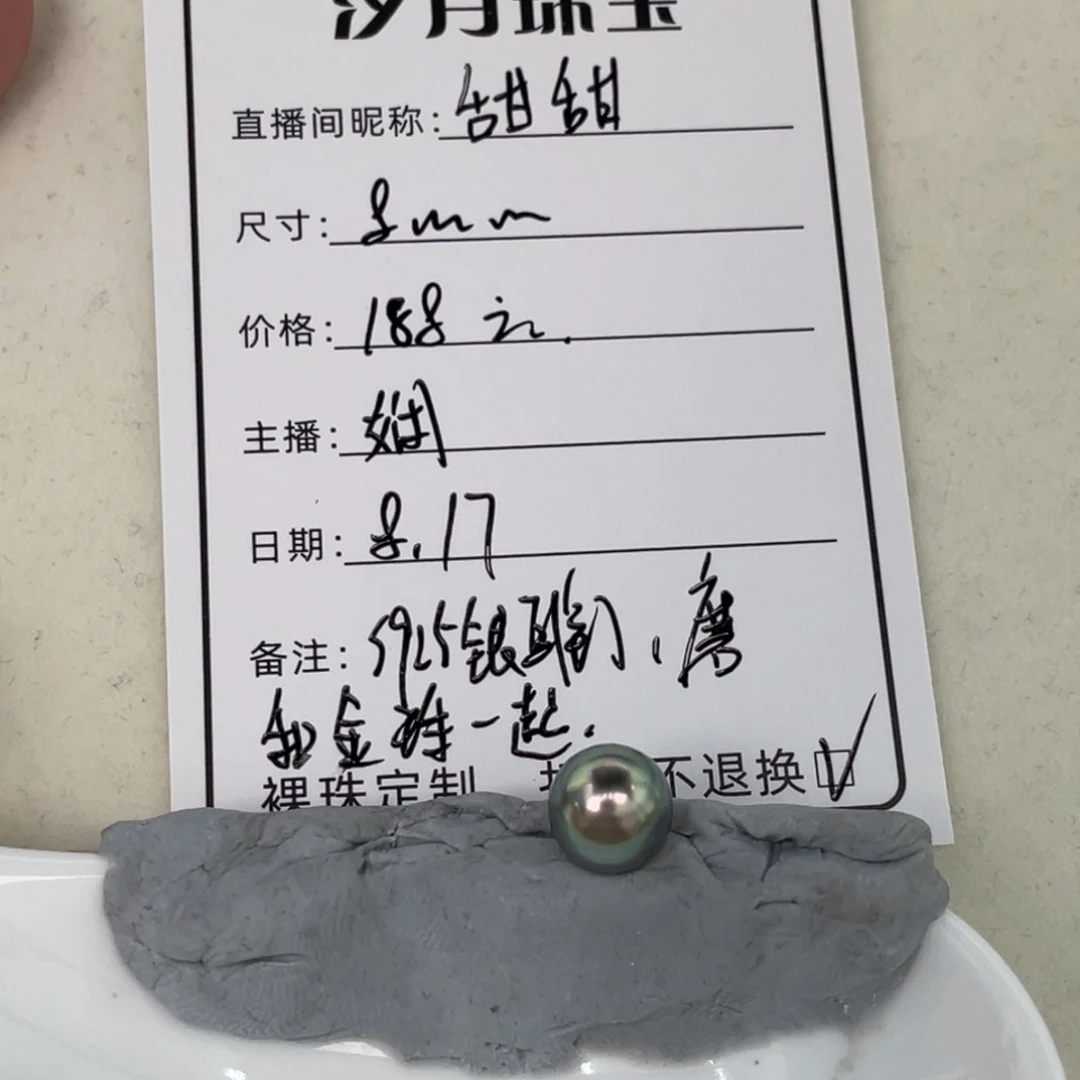 汐月珠宝
直播间昵称：甜甜
尺寸：8mm
价格：188元.
主播：娴
日期：8.17
备注：S925银耳
和金珠一起.
裸珠定制 不退换